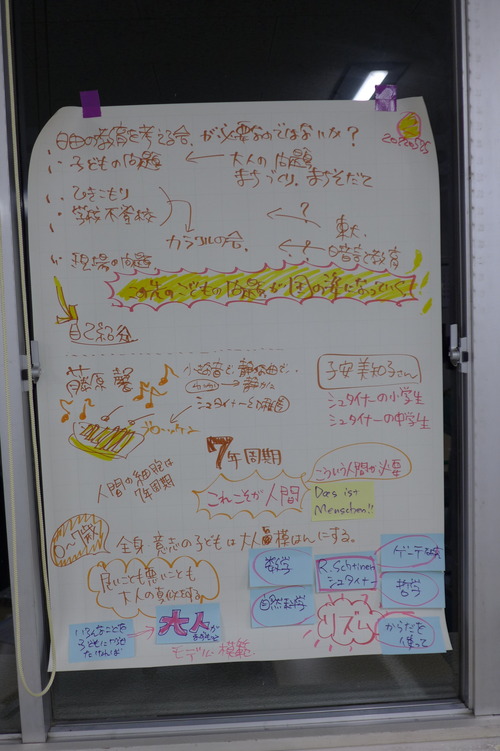 自由の教育を考える会、が必要なのではないか?
20220525
子どもの問題 ← 大人の問題
まちづくり、まちそだて
ひきこもり
学校不登校
?
カラフルの会、
東大
?
現場の問題
この先のこどもの問題が国の姿になっていく!
自己紹介
藤原 馨
小さな音で、静かな曲で、
シュタイナー幼稚園
子安美知子さん
シュタイナーの小学生
シュタイナーの中学生
人間の細胞は
7年周期
7年周期
これこそが人間
こういう人間が必要
Das ist
Menschen!!
0~7歳
全身意志の子どもは大人を模はんにする。
良いことも悪いことも
大人の真似をする
数学
自然科学
シュタイナー
哲学
リズム
からだを
使って
いろんなことを
大人が
モデル・模範